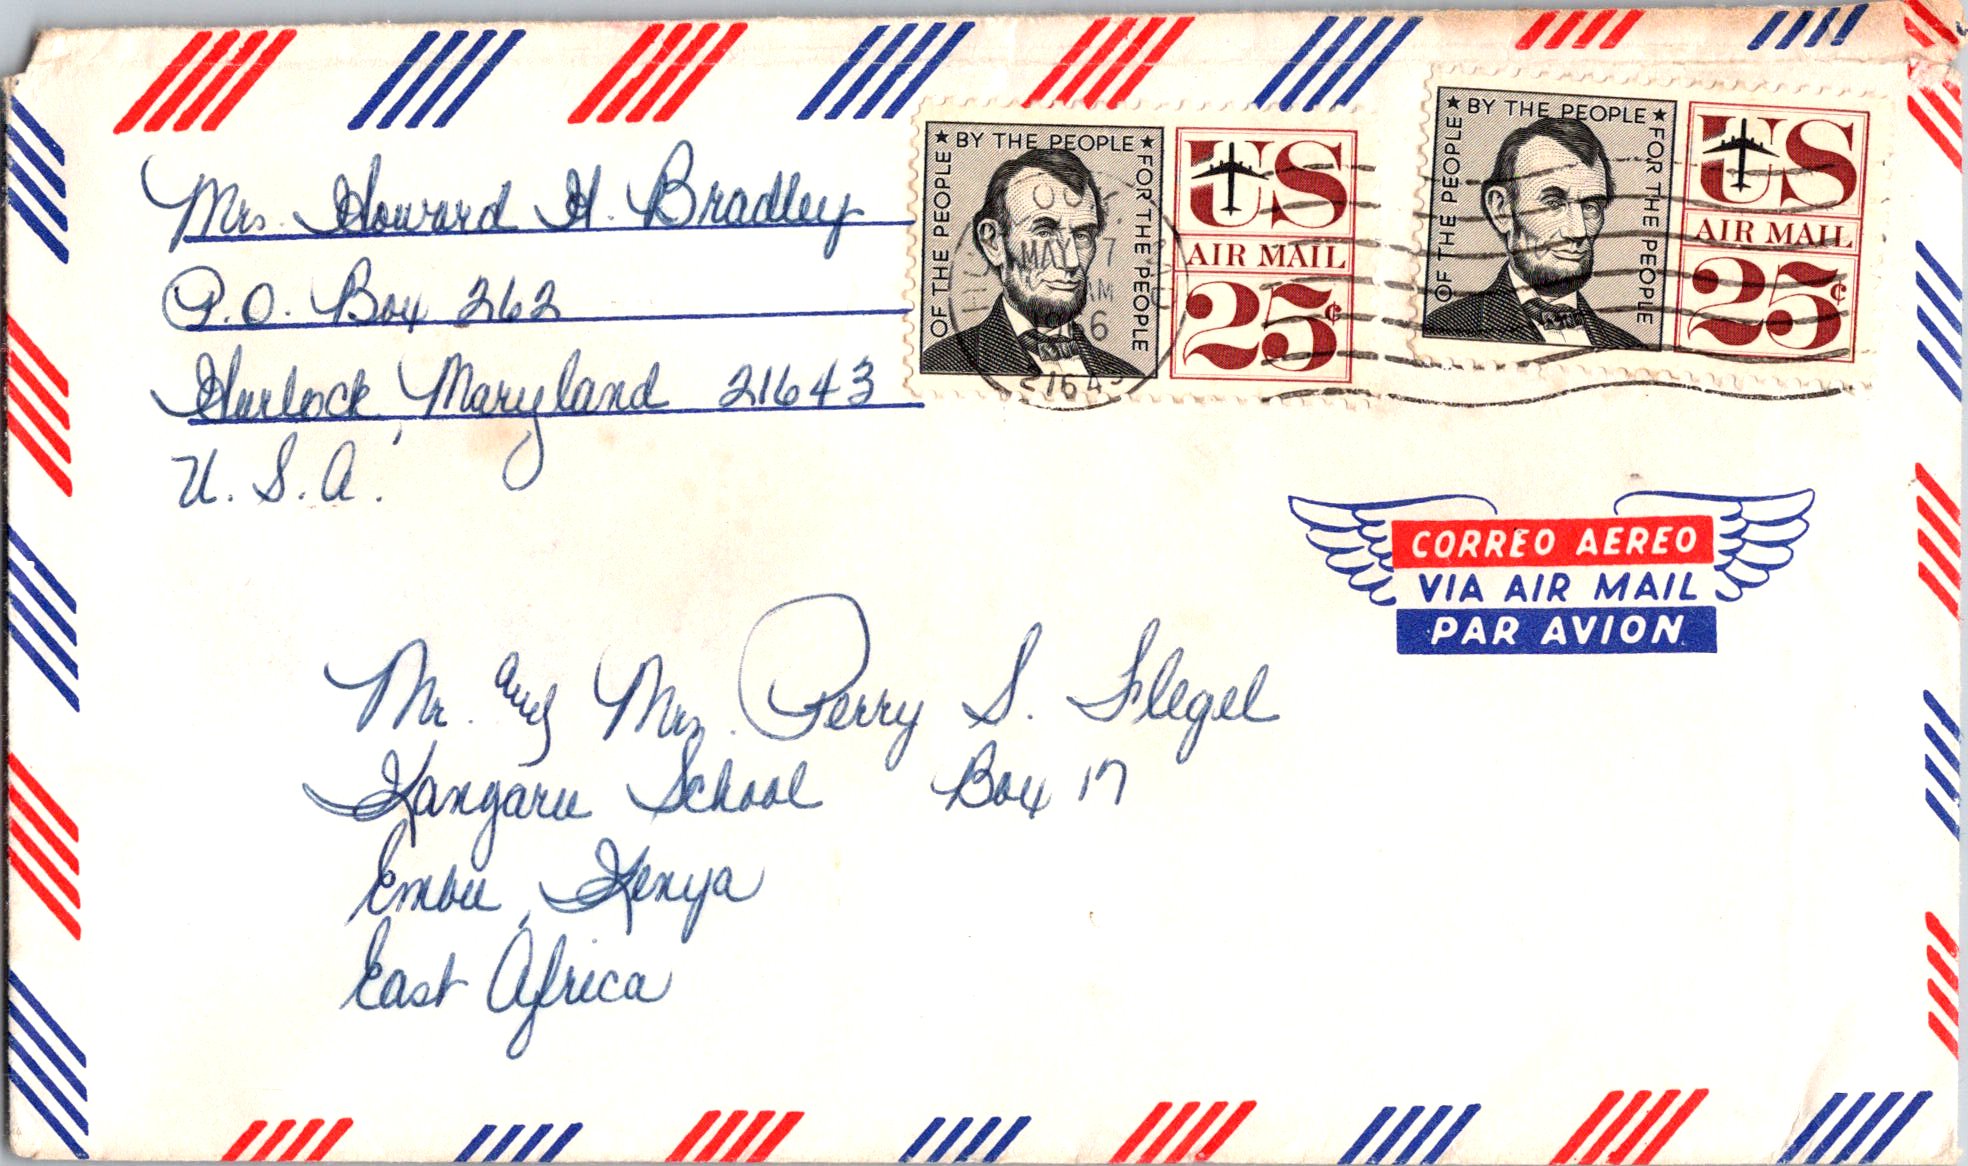 Mrs. Howard H. Bradley
P.O. Box 262
Hurlock, Maryland 21643
U. S. A.
OF THE PEOPLE ★ BY THE PEOPLE ★ FOR THE PEOPLE
US
AIR MAIL
25¢
OF THE PEOPLE ★ BY THE PEOPLE ★ FOR THE PEOPLE
US
AIR MAIL
25¢
MAY 7
AM
CORREO AEREO
VIA AIR MAIL
PAR AVION
Mr. and Mrs. Perry S. Flegel
Kangaru School Box 17
Embu, Kenya
East Africa